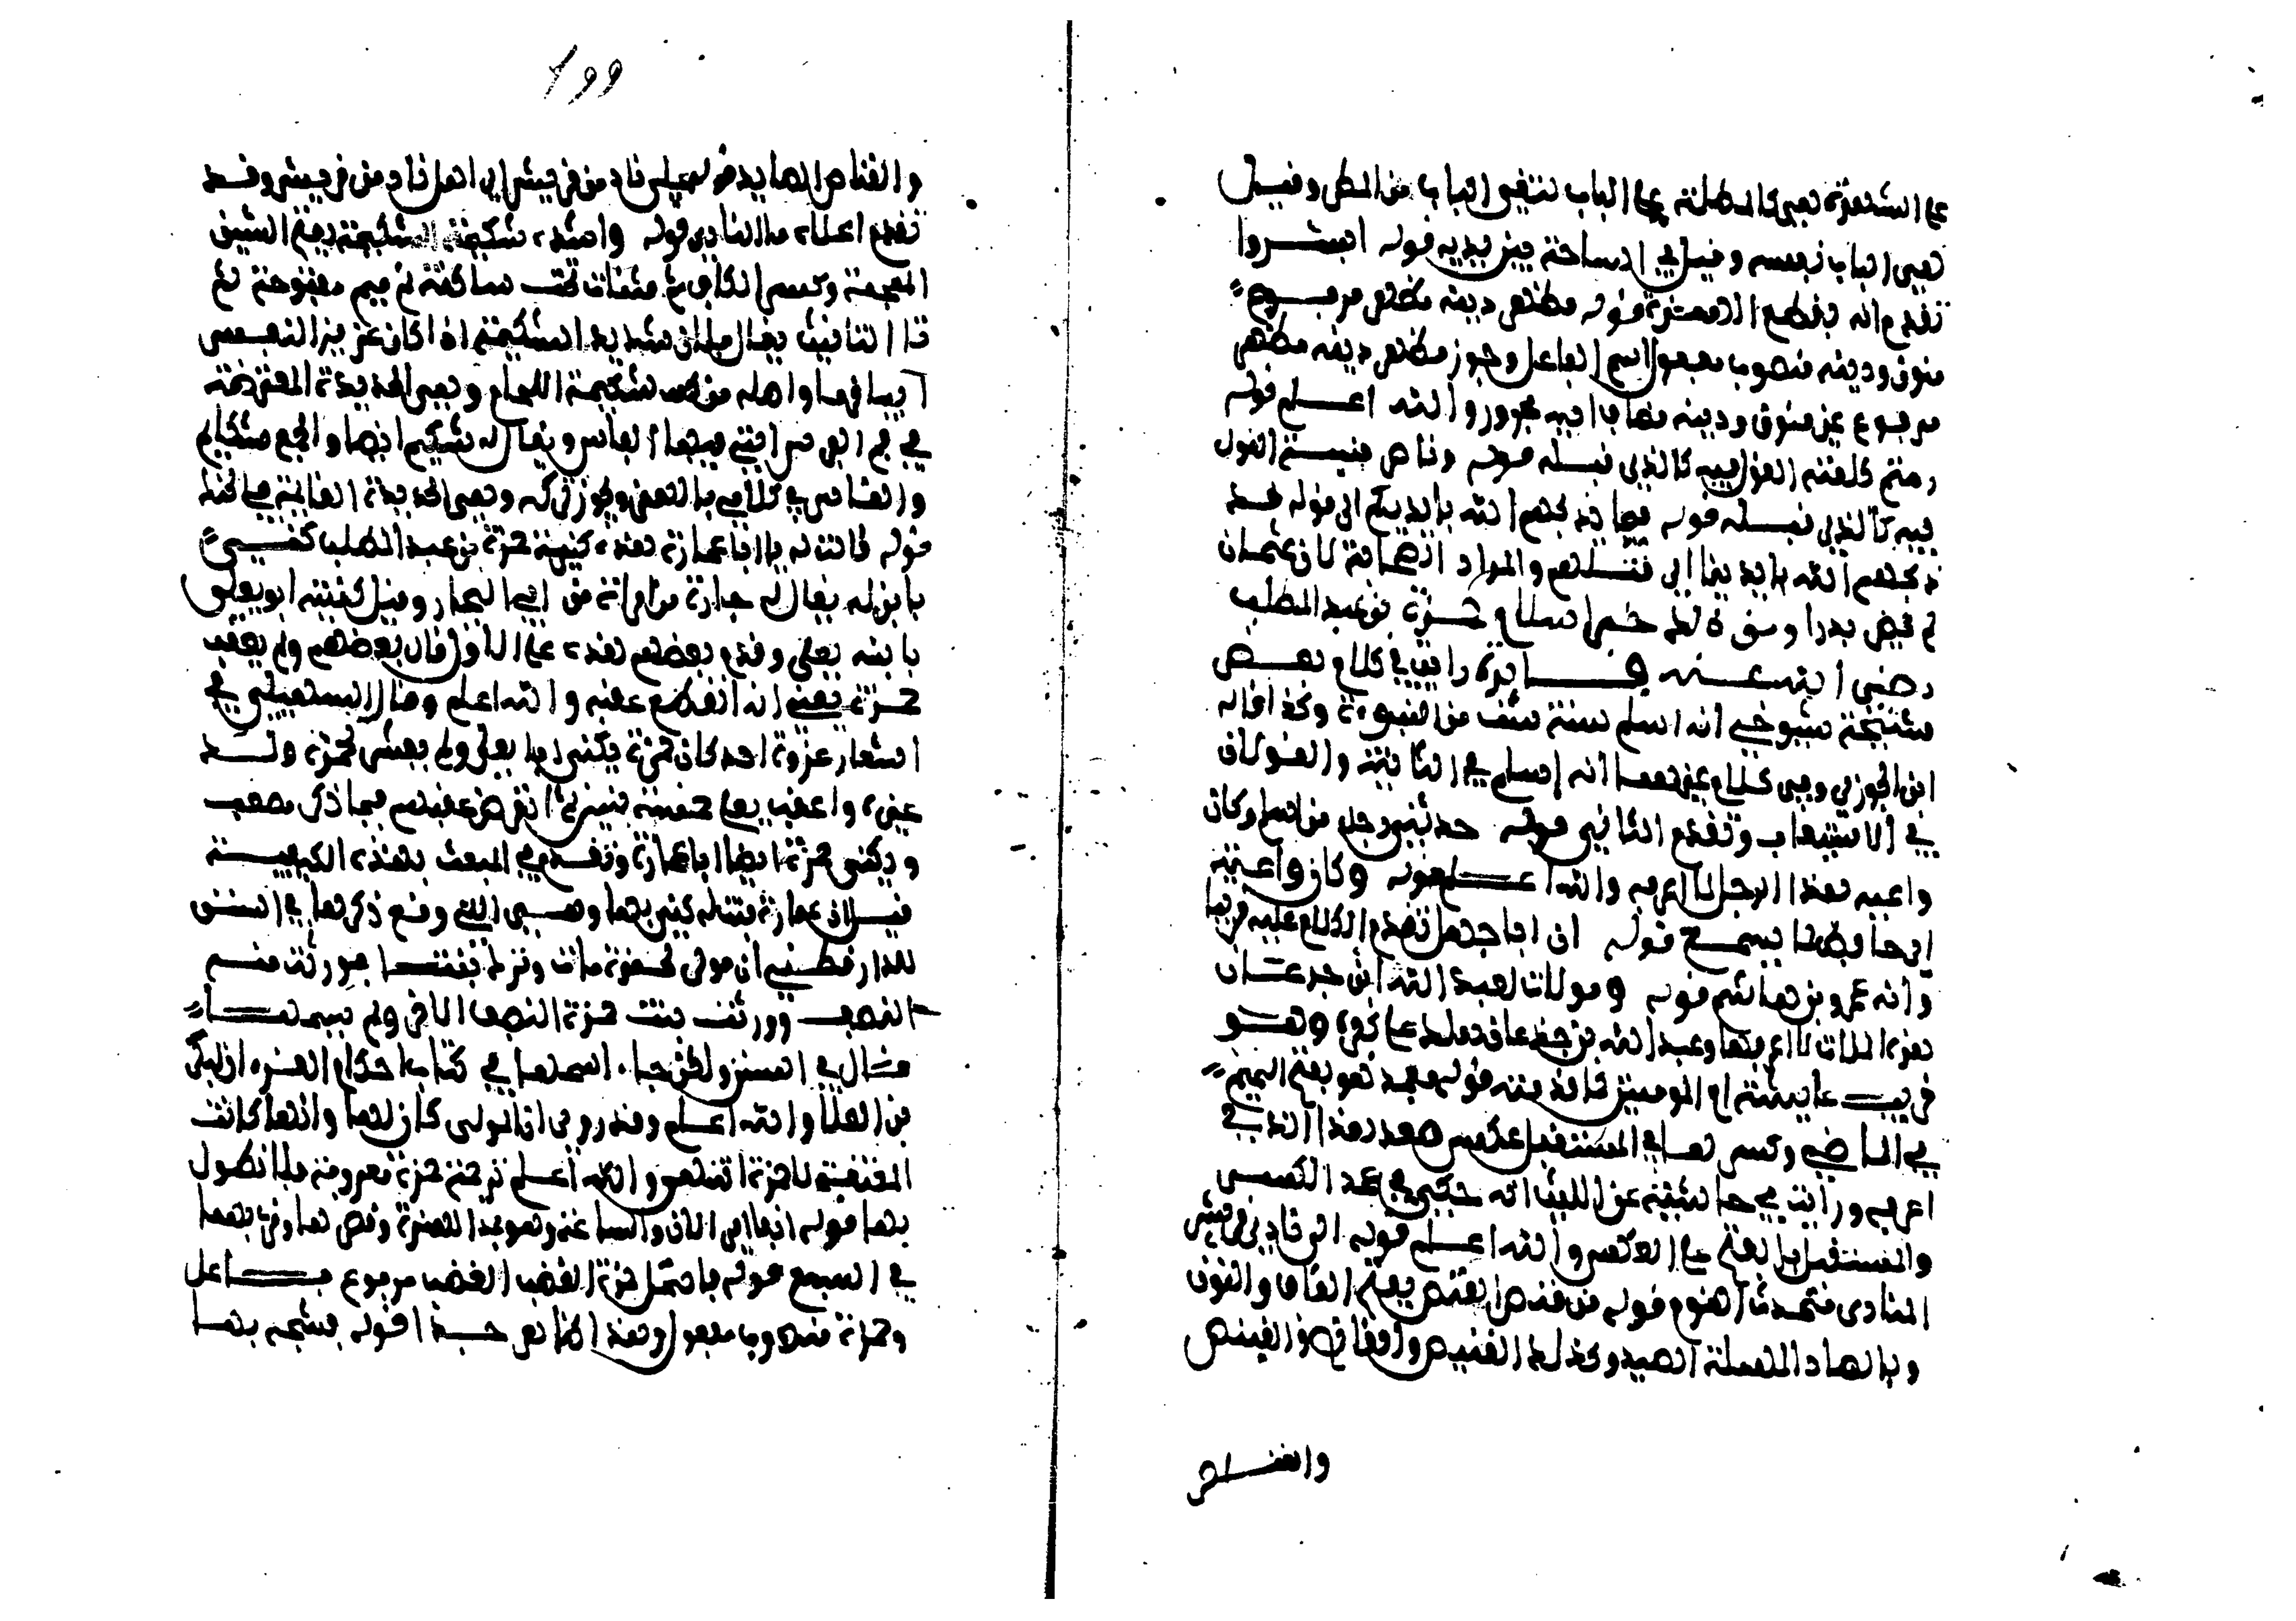 على السدة وهي كالمظلة على الباب لتقي الباب من المطر وقيل
هي الباب نفسه وقيل هي الساحة بين يديه قوله ابشروا
تقدم انه بقطع الهمزة قوله مظهر دينه مظهر مرفوع
منون ودينه منصوب مفعول اسم الفاعل ويجوز مظهر دينه مظهر
مرفوع غير منون ودينه مضاف اليه مجرور والله اعلم قوله
القول فيه كالذي قبله قوله القول
فيه كالذي قبله قوله الله بايديكم الى قوله لقد
ذبحهم الله بايدينا اي قتلهم والمراد الصحابة لان عثمان
لم يحضر بدرا ذكر خبر اسلام حمزة بن عبد المطلب
رضي الله عنه فائدة رايت في كلام بعض
مشيخة شيوخي انه اسلم سنة ست من النبوءة وكذا قاله
ابن الجوزي وفي كلام غيرهما انه اسلم في الثانية والقولان
في الاستيعاب وتقدم الثاني قوله حدثني رجل من اسلم وكان
واعيه هذا الرجل لا اعرفه والله اعلم قوله وكان واعية
اي حافظا بسمع قوله ان ابا جهل تقدم الكلام عليه قريبا
وانه عمرو بن هشام قوله ومولات لعبد الله ابن جدعان
هذه المولات لا اعرفها وعبد الله بن جدعان هلك على كفره وهو
قريب عايشة ام المومنين قوله فعمد هو بفتح الميم
في الماضي وكسرها في المستقبل عكس صعد هذا الذي
اعرفه ورايت في حاشية عن اللبلي انه حكي في عمد الكسر
والمستقبل بالفتح على العكس والله اعلم قوله الى نادي قريش
النادي متحدث القوم قوله من قنص القنص بفتح القاف والنون
وبالصاد المهملة الصيد وكذلك القنيص والقانص والقنيص
والقناص
199
والقناص الصايد قوله على ناد من قريش اي اهل ناد من قريش وقد
تقدم اعلاه ما النادي قوله واشده شكيمة الشكيمة بفتح الشين
المعجمة وكسر الكاف ثم مثنات تحت ساكنة ثم ميم مفتوحة ثم
تا التانيث يقال فلان شديد الشكيمة اذا كان عزيز النفس
ابيا قويا واصله من شكيمة اللجام وهي الحديدة المعترضة
في فم الفرس التي فيها الفاس ويقال له شكيم ايضا والجمع شكايم
والفاس في كلامي بالهمز ويجوز تركه وهي الحديدة القايمة في الحنك
قوله قالت له يا ابا عمارة هذه كنية حمزة بن عبد المطلب كني
بابن له يقال له عمارة من امراة من بني النجار وقيل كنيته ابو يعلى
بابنه يعلى وقدم بعضهم هذه على الاولى قال بعضهم ولم يعقب
حمزة يعني انه انقطع عقبه والله اعلم وقال السهيلي في
اشعار غزوة احد كان حمزة يكنى ابا يعلى ولم يعش لحمزة ولد
غيره واعقب يعلى خمسة بنين ثم انقرض عقبهم فيما ذكر مصعب
ويكنى حمزة ايضا ابا عمارة وتقدم في المبعث بهذه الكنية
قيل ان عمارة بنت له كني بها وهي التي وقع ذكرها في السنن
للدارقطني ان مولى لحمزة مات وترك بنتا فورثت منه
النصف وورثت بنت حمزة النصف الباقي ولم يسمها
قال في السنن ولكن جاء اسمها في كتاب احكام القرءان لبكر
بن العلا والله اعلم وقد روي ان المولى كان لها وانها كانت
المعتقة لا حمزة انتهى والله اعلم ترجمة حمزة معروفة فلا نطول
بها قوله انفا اي الان والساعة وهو بمد الهمزة وقصرها وقرئ بهما
في السبع قوله فاحتمل حمزة الغضب الغضب مرفوع فاعل
وحمزة منصوب مفعول وهذا ظاهر جدا قوله فشجه بها